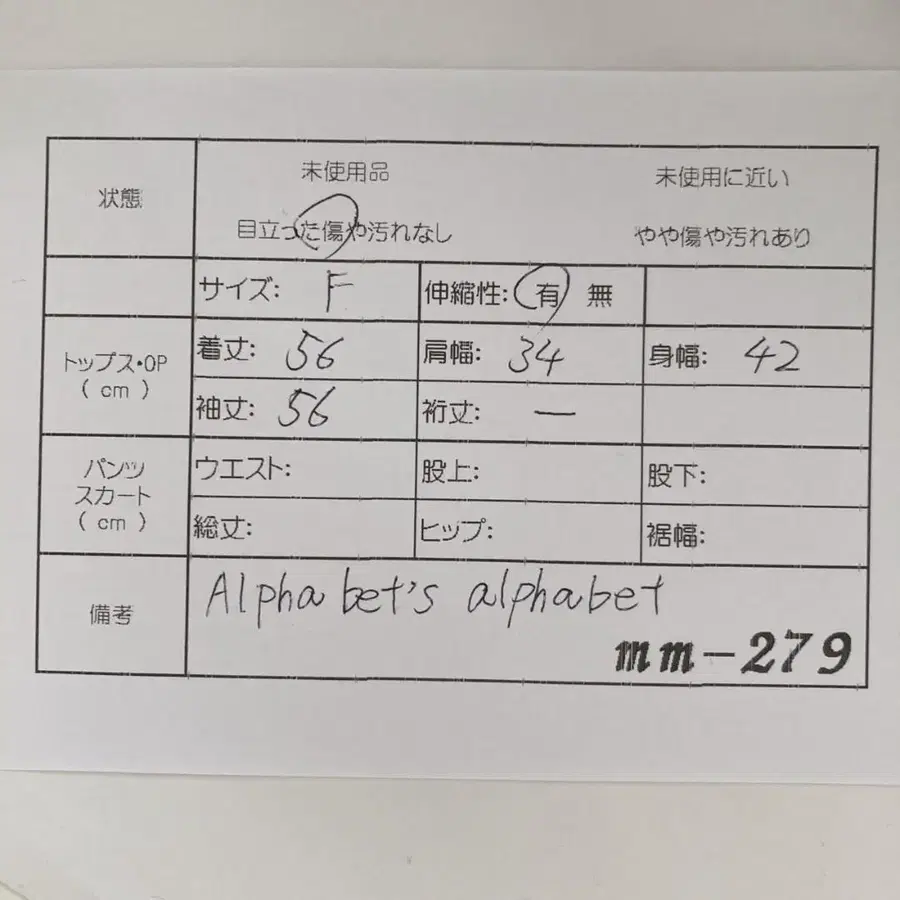 状態
未使用品 未使用に近い
目立った傷や汚れなし やや傷や汚れあり
サイズ: F 伸縮性: 有 無
トップス・OP
( cm )
着丈: 56 肩幅: 34 身幅: 42
袖丈: 56 裄丈: —
パンツ
スカート
( cm )
ウエスト: 股上: 股下:
総丈: ヒップ: 裾幅:
備考
Alphabet's alphabet
mm-279